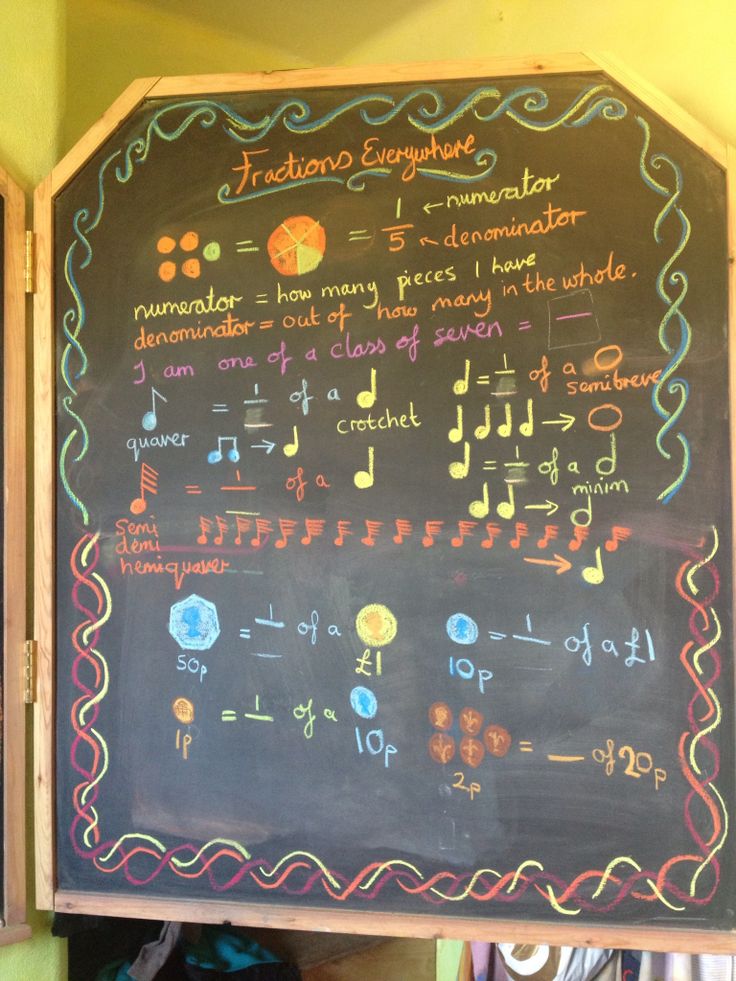 Fractions Everywhere
= = 1/5 ← numerator
← denominator
numerator = how many pieces I have
denominator = out of how many in the whole.
I am one of a class of seven = —
= 1/ of a
quaver → crotchet
= 1/ of a semibreve
→
= 1/ of a
→ minim
= 1/ of a
semi
demi
hemiquaver
→
= 1/ of a
50p £1
= 1/ of a £1
10p
= 1/ of a
1p 10p
= — of 20p
2p